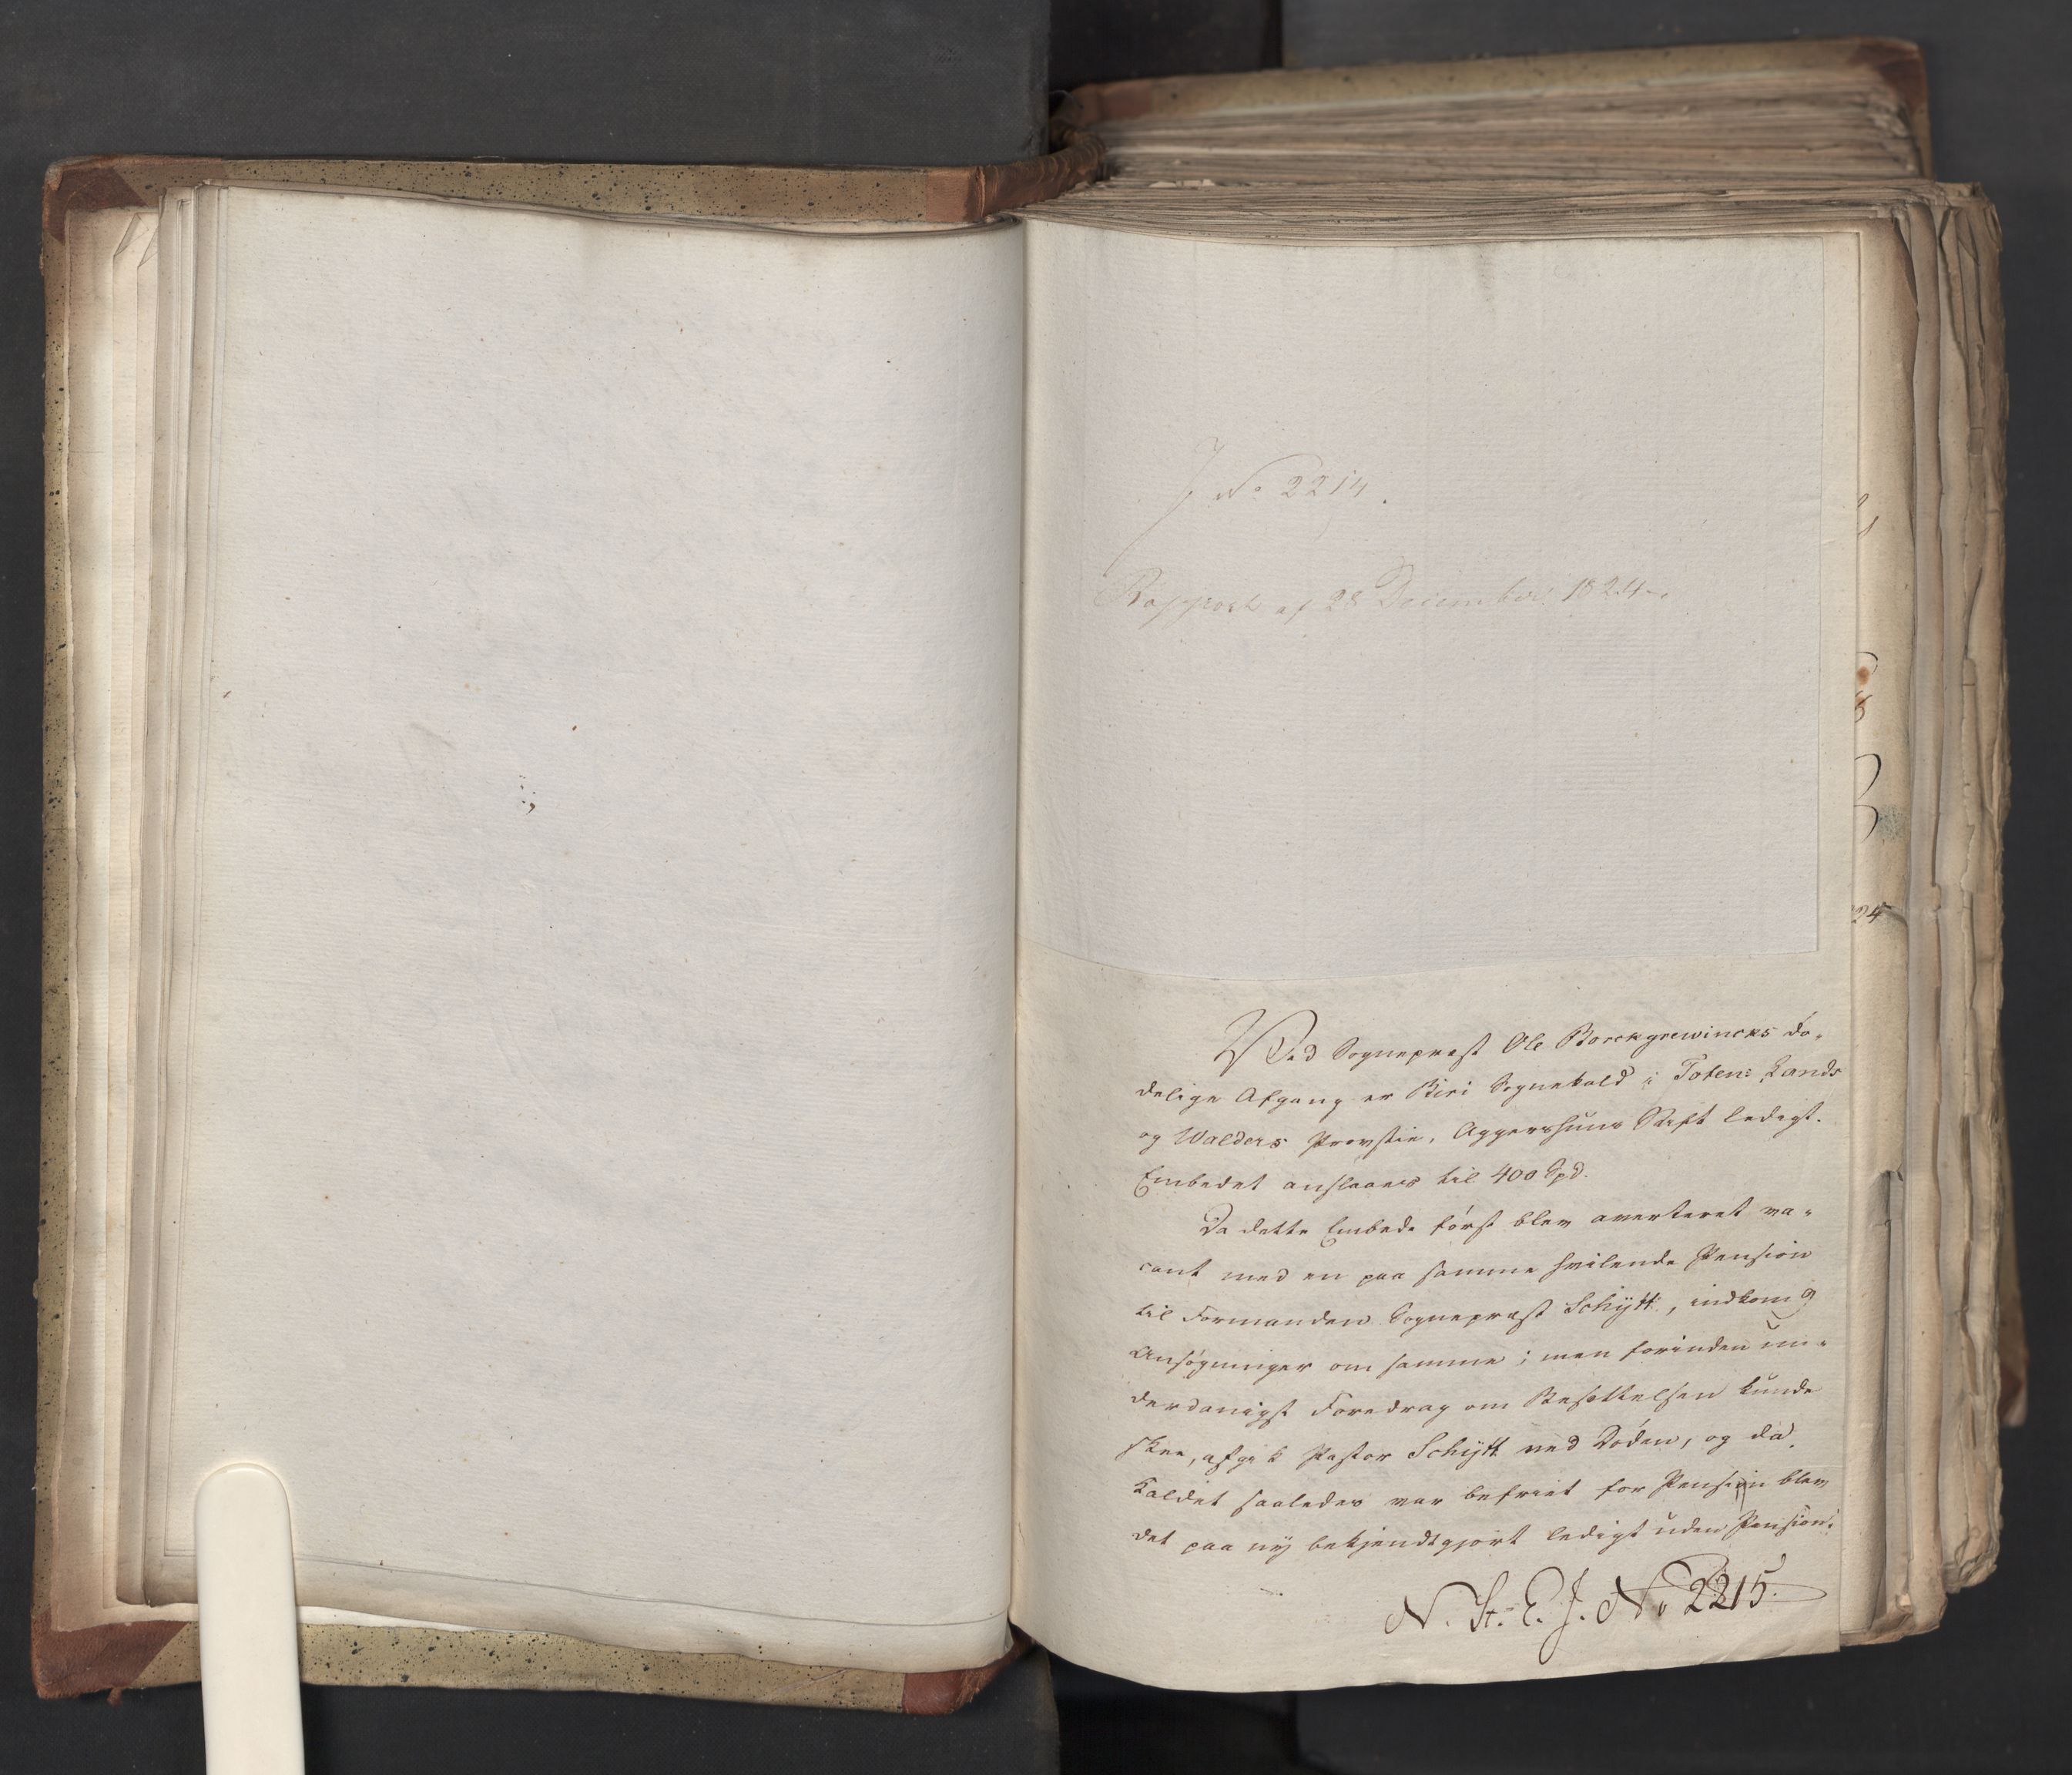 J No 2214.
Rapport af 28 December 1824.
Ved Sognepræst Ole Borckgrewincks dø-
delige Afgang er Biri Sognekald i Toten: Lands
og Walders Provstie, Aggershuus Stift ledigt.
Embedet anslaaes til 400 Spd.
Da dette Embede først blev averteret va-
cant med en paa samme hvilende Pension
til Formanden Sognepræst Schÿtt, indkom 9
Ansøgninger om samme; men forinden un-
derdanigst Foredrag om Besættelsen kunde
skee, afgik Pastor Schÿtt ved Døden, og da
Kaldet saaledes var befriet for Pension blev
det paa nÿ bekjendtgjort ledigt uden Pension:
N. St. E. J. No 2215.
24